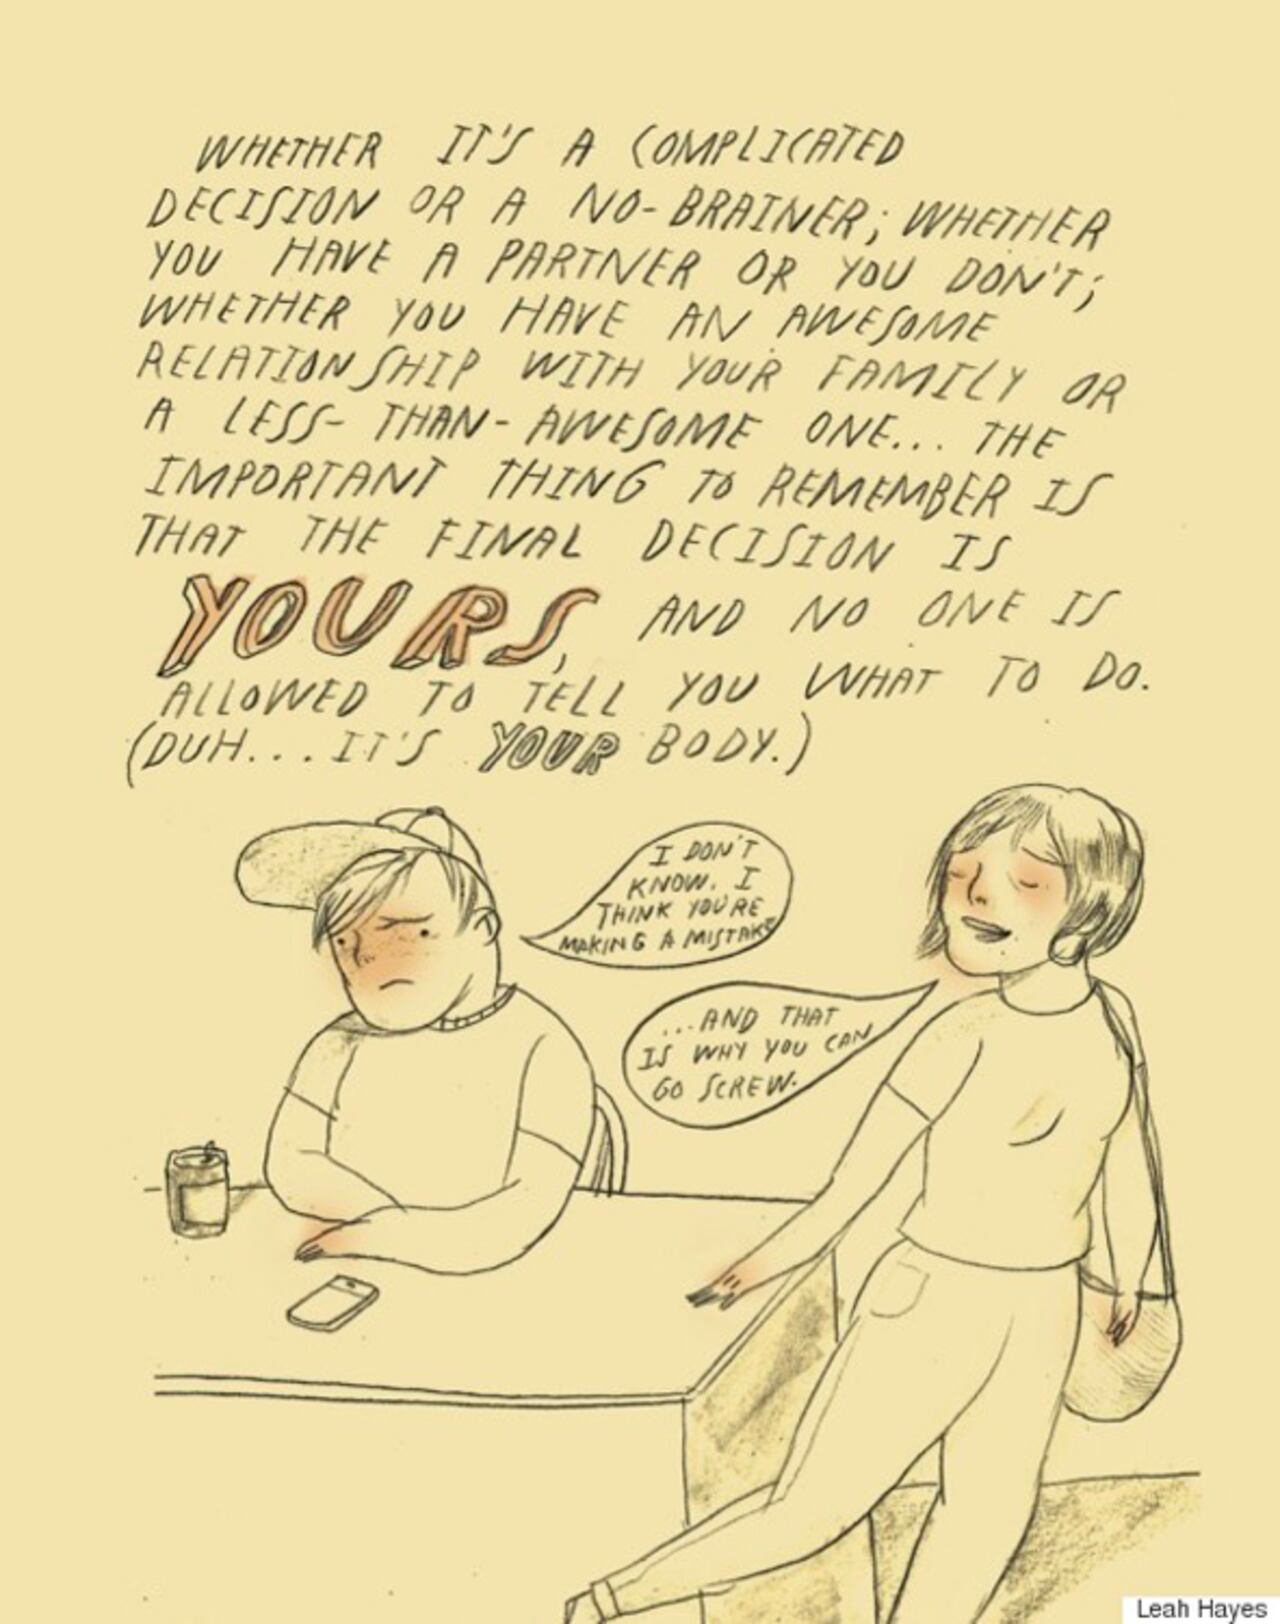 WHETHER IT'S A COMPLICATED
DECISION OR A NO-BRAINER; WHETHER
YOU HAVE A PARTNER OR YOU DON'T;
WHETHER YOU HAVE AN AWESOME
RELATIONSHIP WITH YOUR FAMILY OR
A LESS-THAN-AWESOME ONE... THE
IMPORTANT THING TO REMEMBER IS
THAT THE FINAL DECISION IS
YOURS, AND NO ONE IS
ALLOWED TO TELL YOU WHAT TO DO.
(DUH... IT'S YOUR BODY.)
I DON'T
KNOW. I
THINK YOU'RE
MAKING A MISTAKE
...AND THAT
IS WHY YOU CAN
GO SCREW.
Leah Hayes